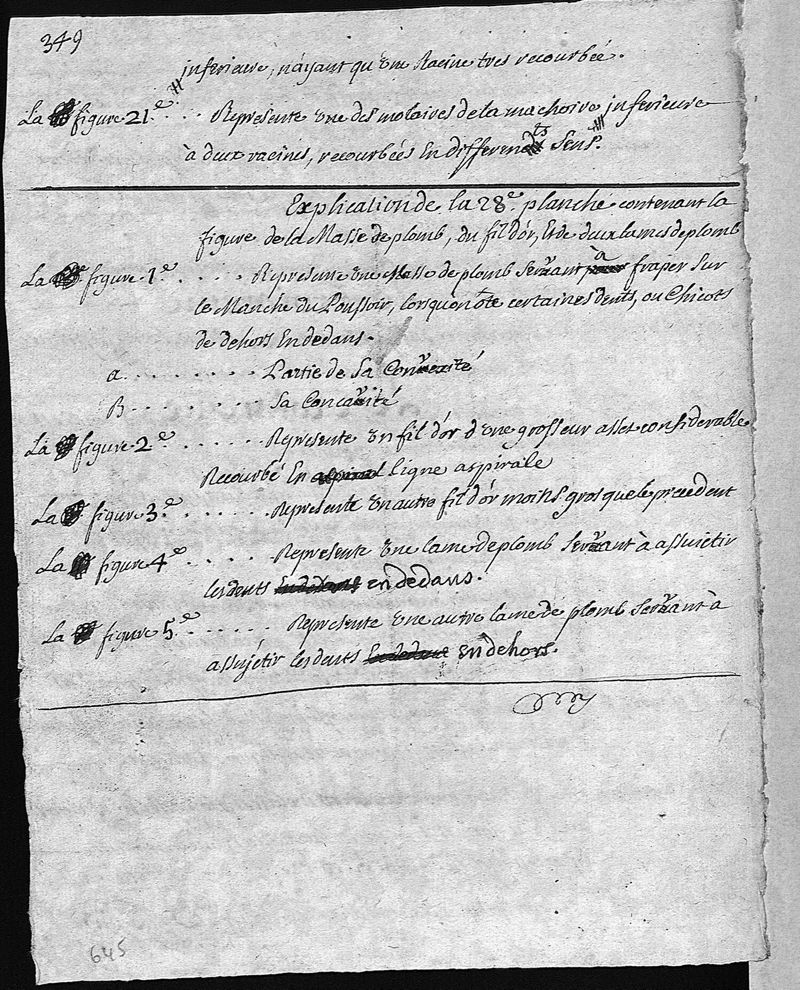 349
inferieure, n'ayant qu'une Racine tres recourbée.
La figure 21.e . . . Represente une des molaires de la machoire inferieure
à deux racines, recourbées En differents Sens.
Explication de la 28.e planche contenant la
figure de la Masse de plomb, du fil d'or, Et de deux lames de plomb
La figure 1.e . . . . . Represente une Masse de plomb Servant à fraper Sur
le Manche du Poussoir, lorsqu'on ôte certaines dents, ou Chicots
de dehors En dedans.
A . . . . . . . . Partie de Sa Convexité
B . . . . . . . . Sa Concavité
La figure 2.e . . . . . . Represente un fil d'or d'une grosseur asses considerable
Recourbé En ligne aspirale
La figure 3.e . . . . . . Represente un autre fil d'or moins gros que le precedent
La figure 4.e . . . . . Represente une lame de plomb Servant à assujetir
les dents en dedans.
La figure 5.e . . . . . . Represente une autre lame de plomb Servant à
assujetir les dents En dehors.
645